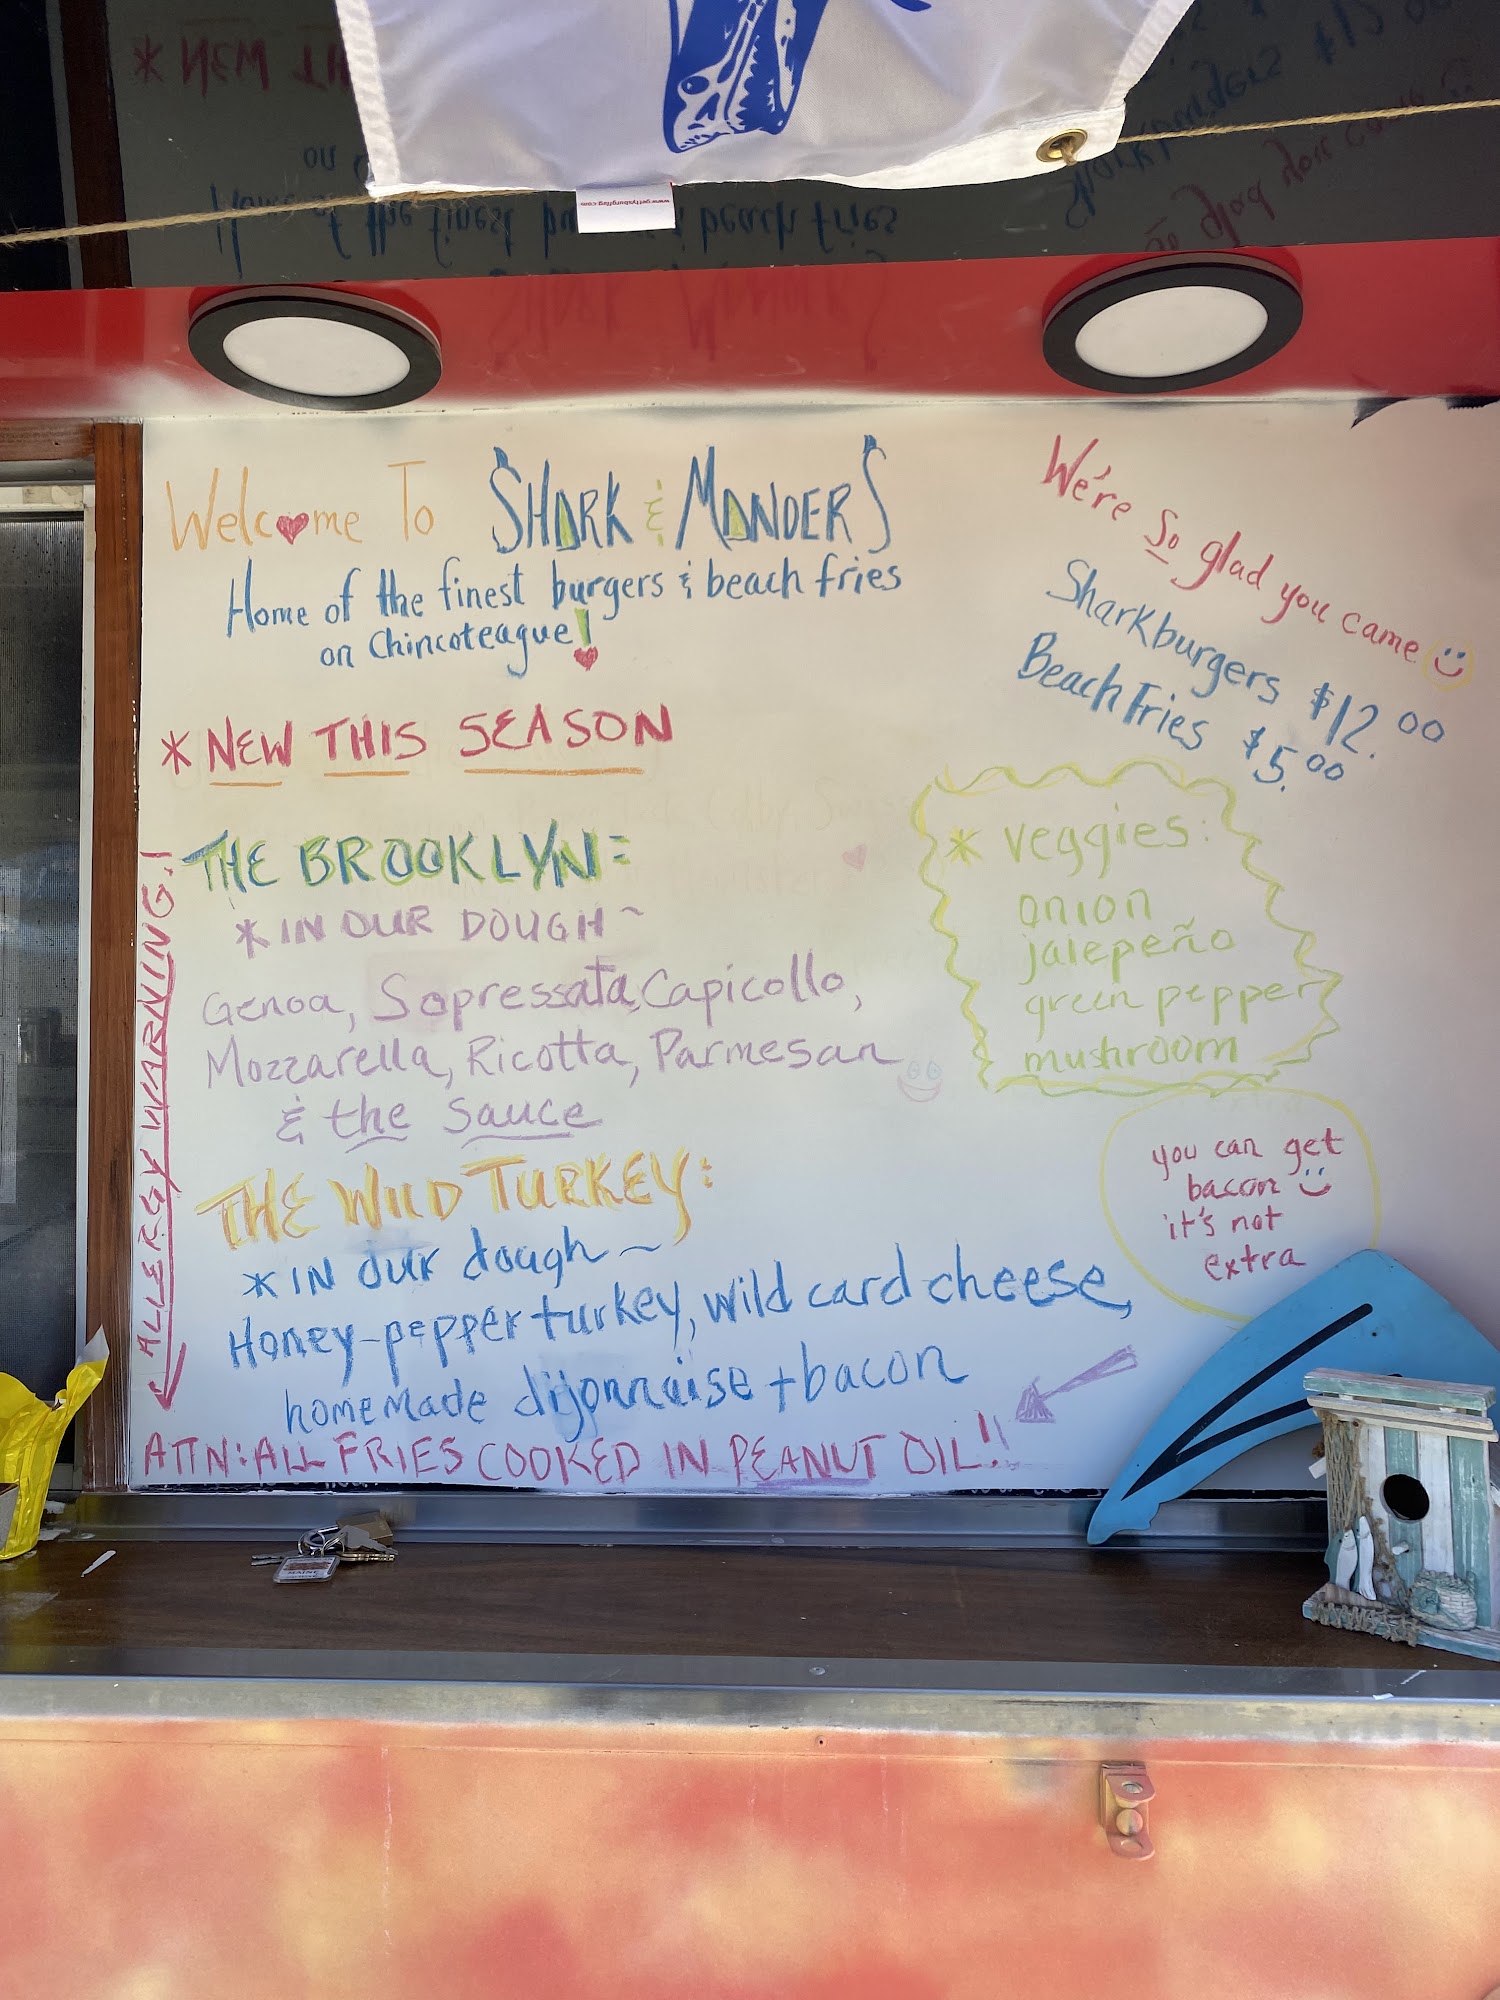 Welcome To SHARK & MANDERS
Home of the finest burgers & beach fries
on Chincoteague!
We're So glad you came
Sharkburgers $12.00
Beach Fries $5.00
* NEW THIS SEASON
THE BROOKLYN:
* IN OUR DOUGH ~
Genoa, Sopressata, Capicollo,
Mozzarella, Ricotta, Parmesan
& the sauce
* veggies:
onion
jalepeño
green pepper
mushroom
you can get
bacon
it's not
extra
THE WILD TURKEY:
* IN our dough ~
Honey-pepper turkey, wild card cheese,
homemade dijonnaise + bacon
ALLERGY WARNING!
ATTN: ALL FRIES COOKED IN PEANUT OIL!!
www.gettysburgflag.com
MAINE